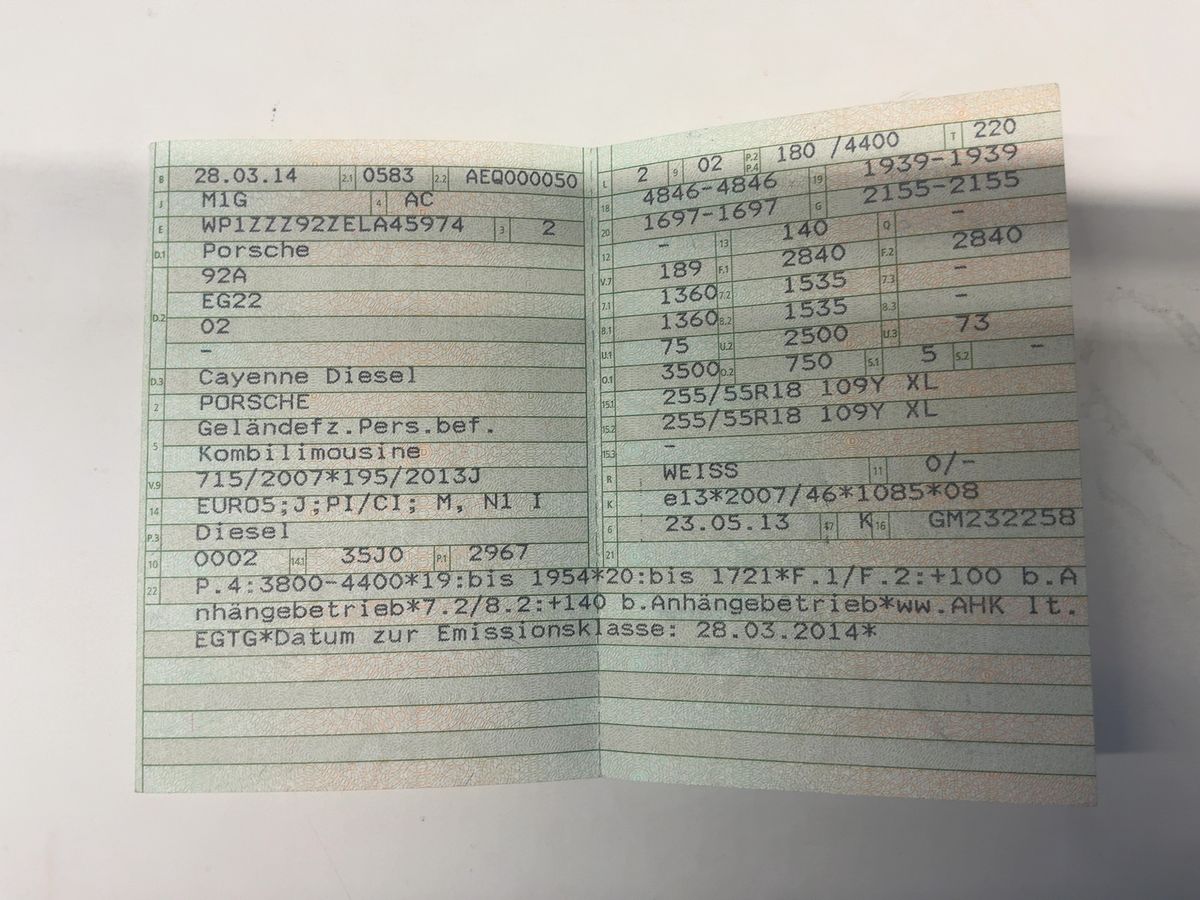 B 28.03.14 2.1 0583 2.2 AEQ000050
J M1G 4 AC
E WP1ZZZ92ZELA45974 3 2
D.1 Porsche
92A
EG22
D.2 02
-
D.3 Cayenne Diesel
2 PORSCHE
Geländefz.Pers.bef.
5 Kombilimousine
V.9 715/2007*195/2013J
14 EURO5;J;PI/CI; M, N1 I
P.3 Diesel
10 0002 14.1 35J0 P.1 2967
L 2 9 02 P.2 P.4 180 /4400 T 220
18 4846-4846 19 1939-1939
20 1697-1697 G 2155-2155
12 - 13 140 Q -
V.7 189 F.1 2840 F.2 2840
7.1 1360 7.2 1535 7.3 -
8.1 1360 8.2 1535 8.3 -
U.1 75 U.2 2500 U.3 73
O.1 3500 O.2 750 S.1 5 S.2 -
15.1 255/55R18 109Y XL
15.2 255/55R18 109Y XL
15.3 -
R WEISS 11 0/-
K e13*2007/46*1085*08
6 23.05.13 17 K 16 GM232258
21
22 P.4:3800-4400*19:bis 1954*20:bis 1721*F.1/F.2:+100 b.A
nhängebetrieb*7.2/8.2:+140 b.Anhängebetrieb*ww.AHK lt.
EGTG*Datum zur Emissionsklasse: 28.03.2014*